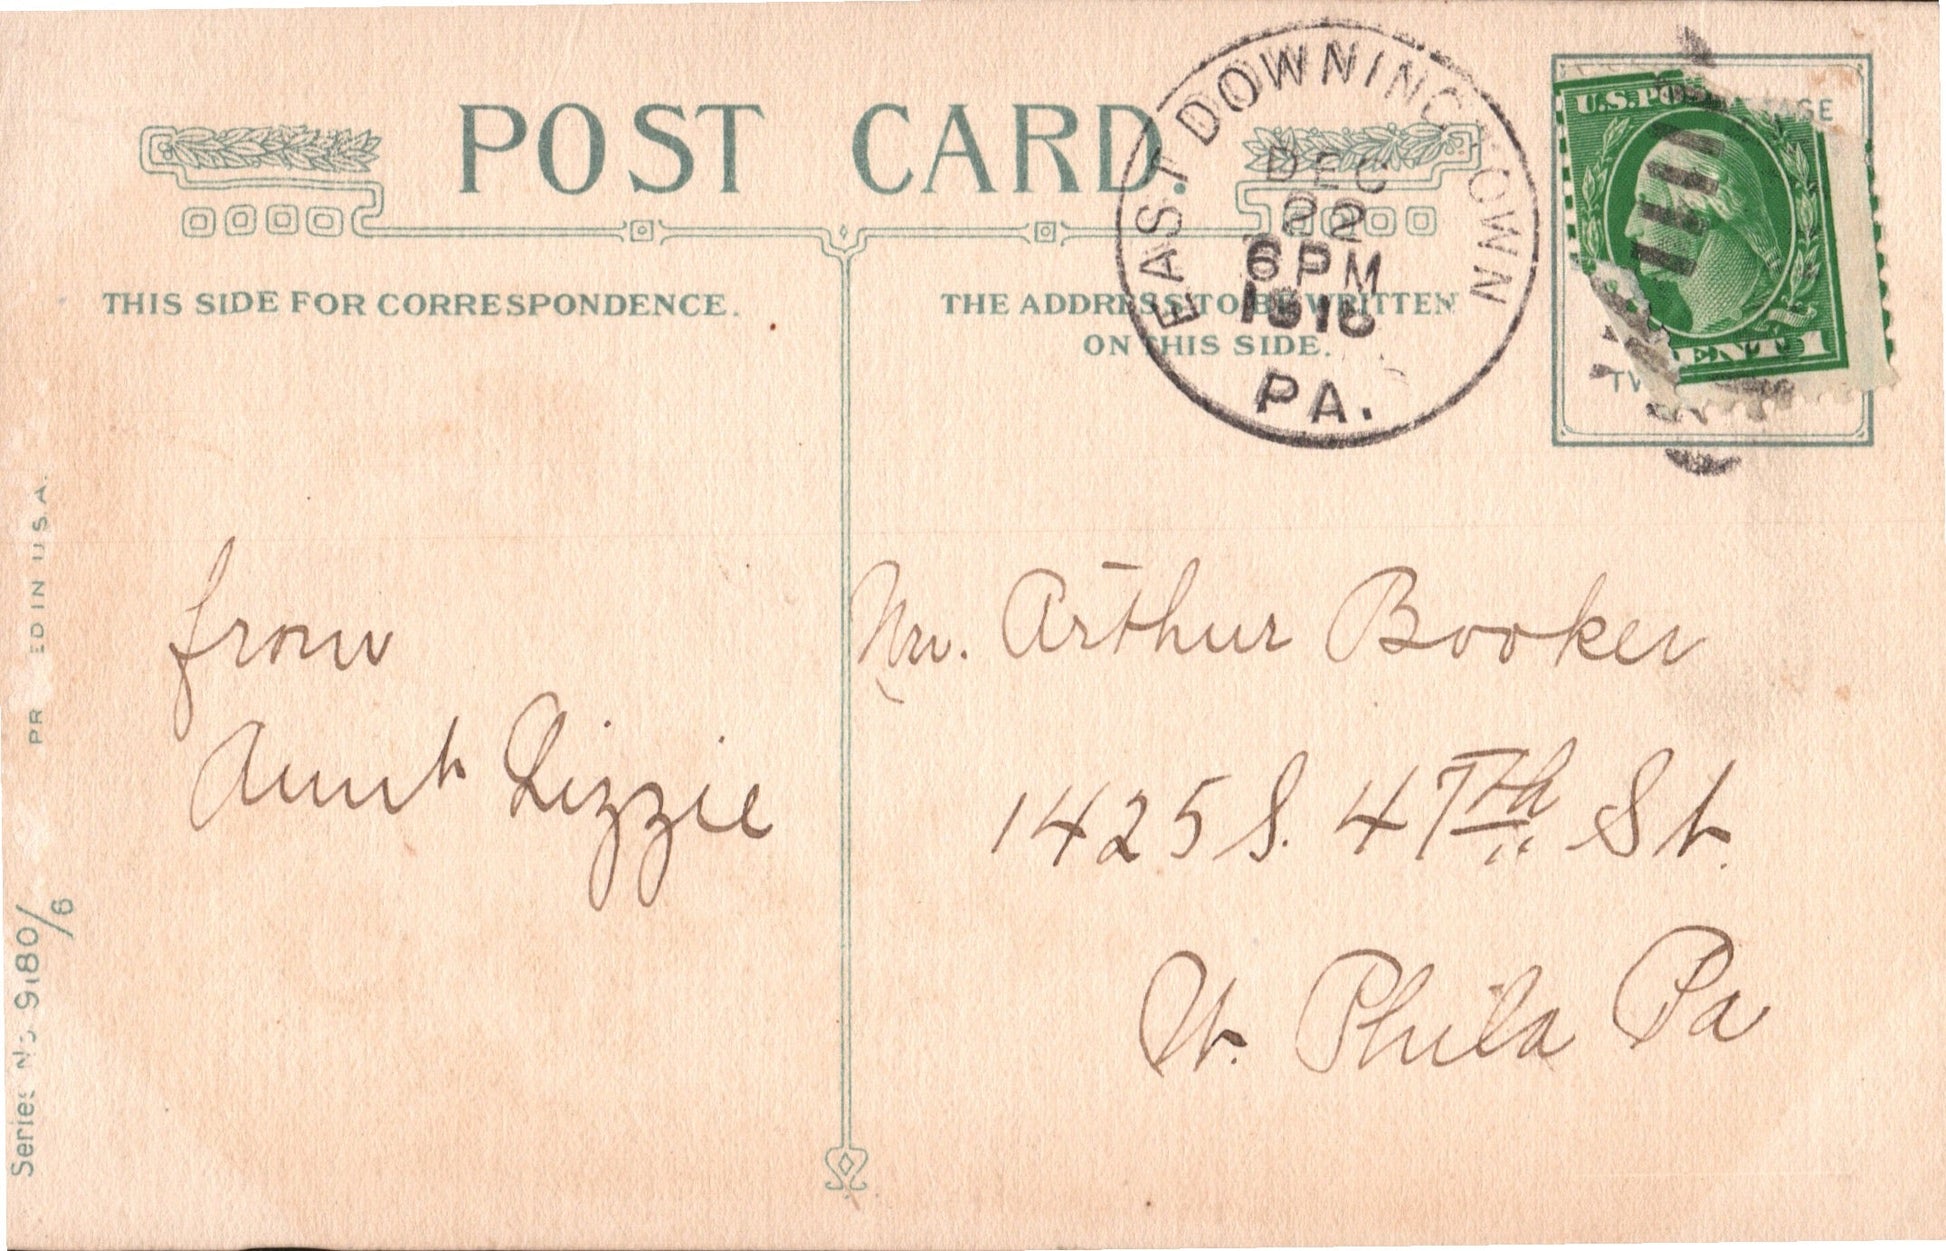 POST CARD.
THIS SIDE FOR CORRESPONDENCE.
THE ADDRESS TO BE WRITTEN
ON THIS SIDE.
EAST DOWNINGTOWN
DEC
22
6 PM
PA.
U.S.PO
AGE
CENT 1
from
Aunt Lizzie
Mr. Arthur Booker
1425 S. 47th St.
W. Phila Pa
PR ED IN U.S.A.
Series No 9180/6